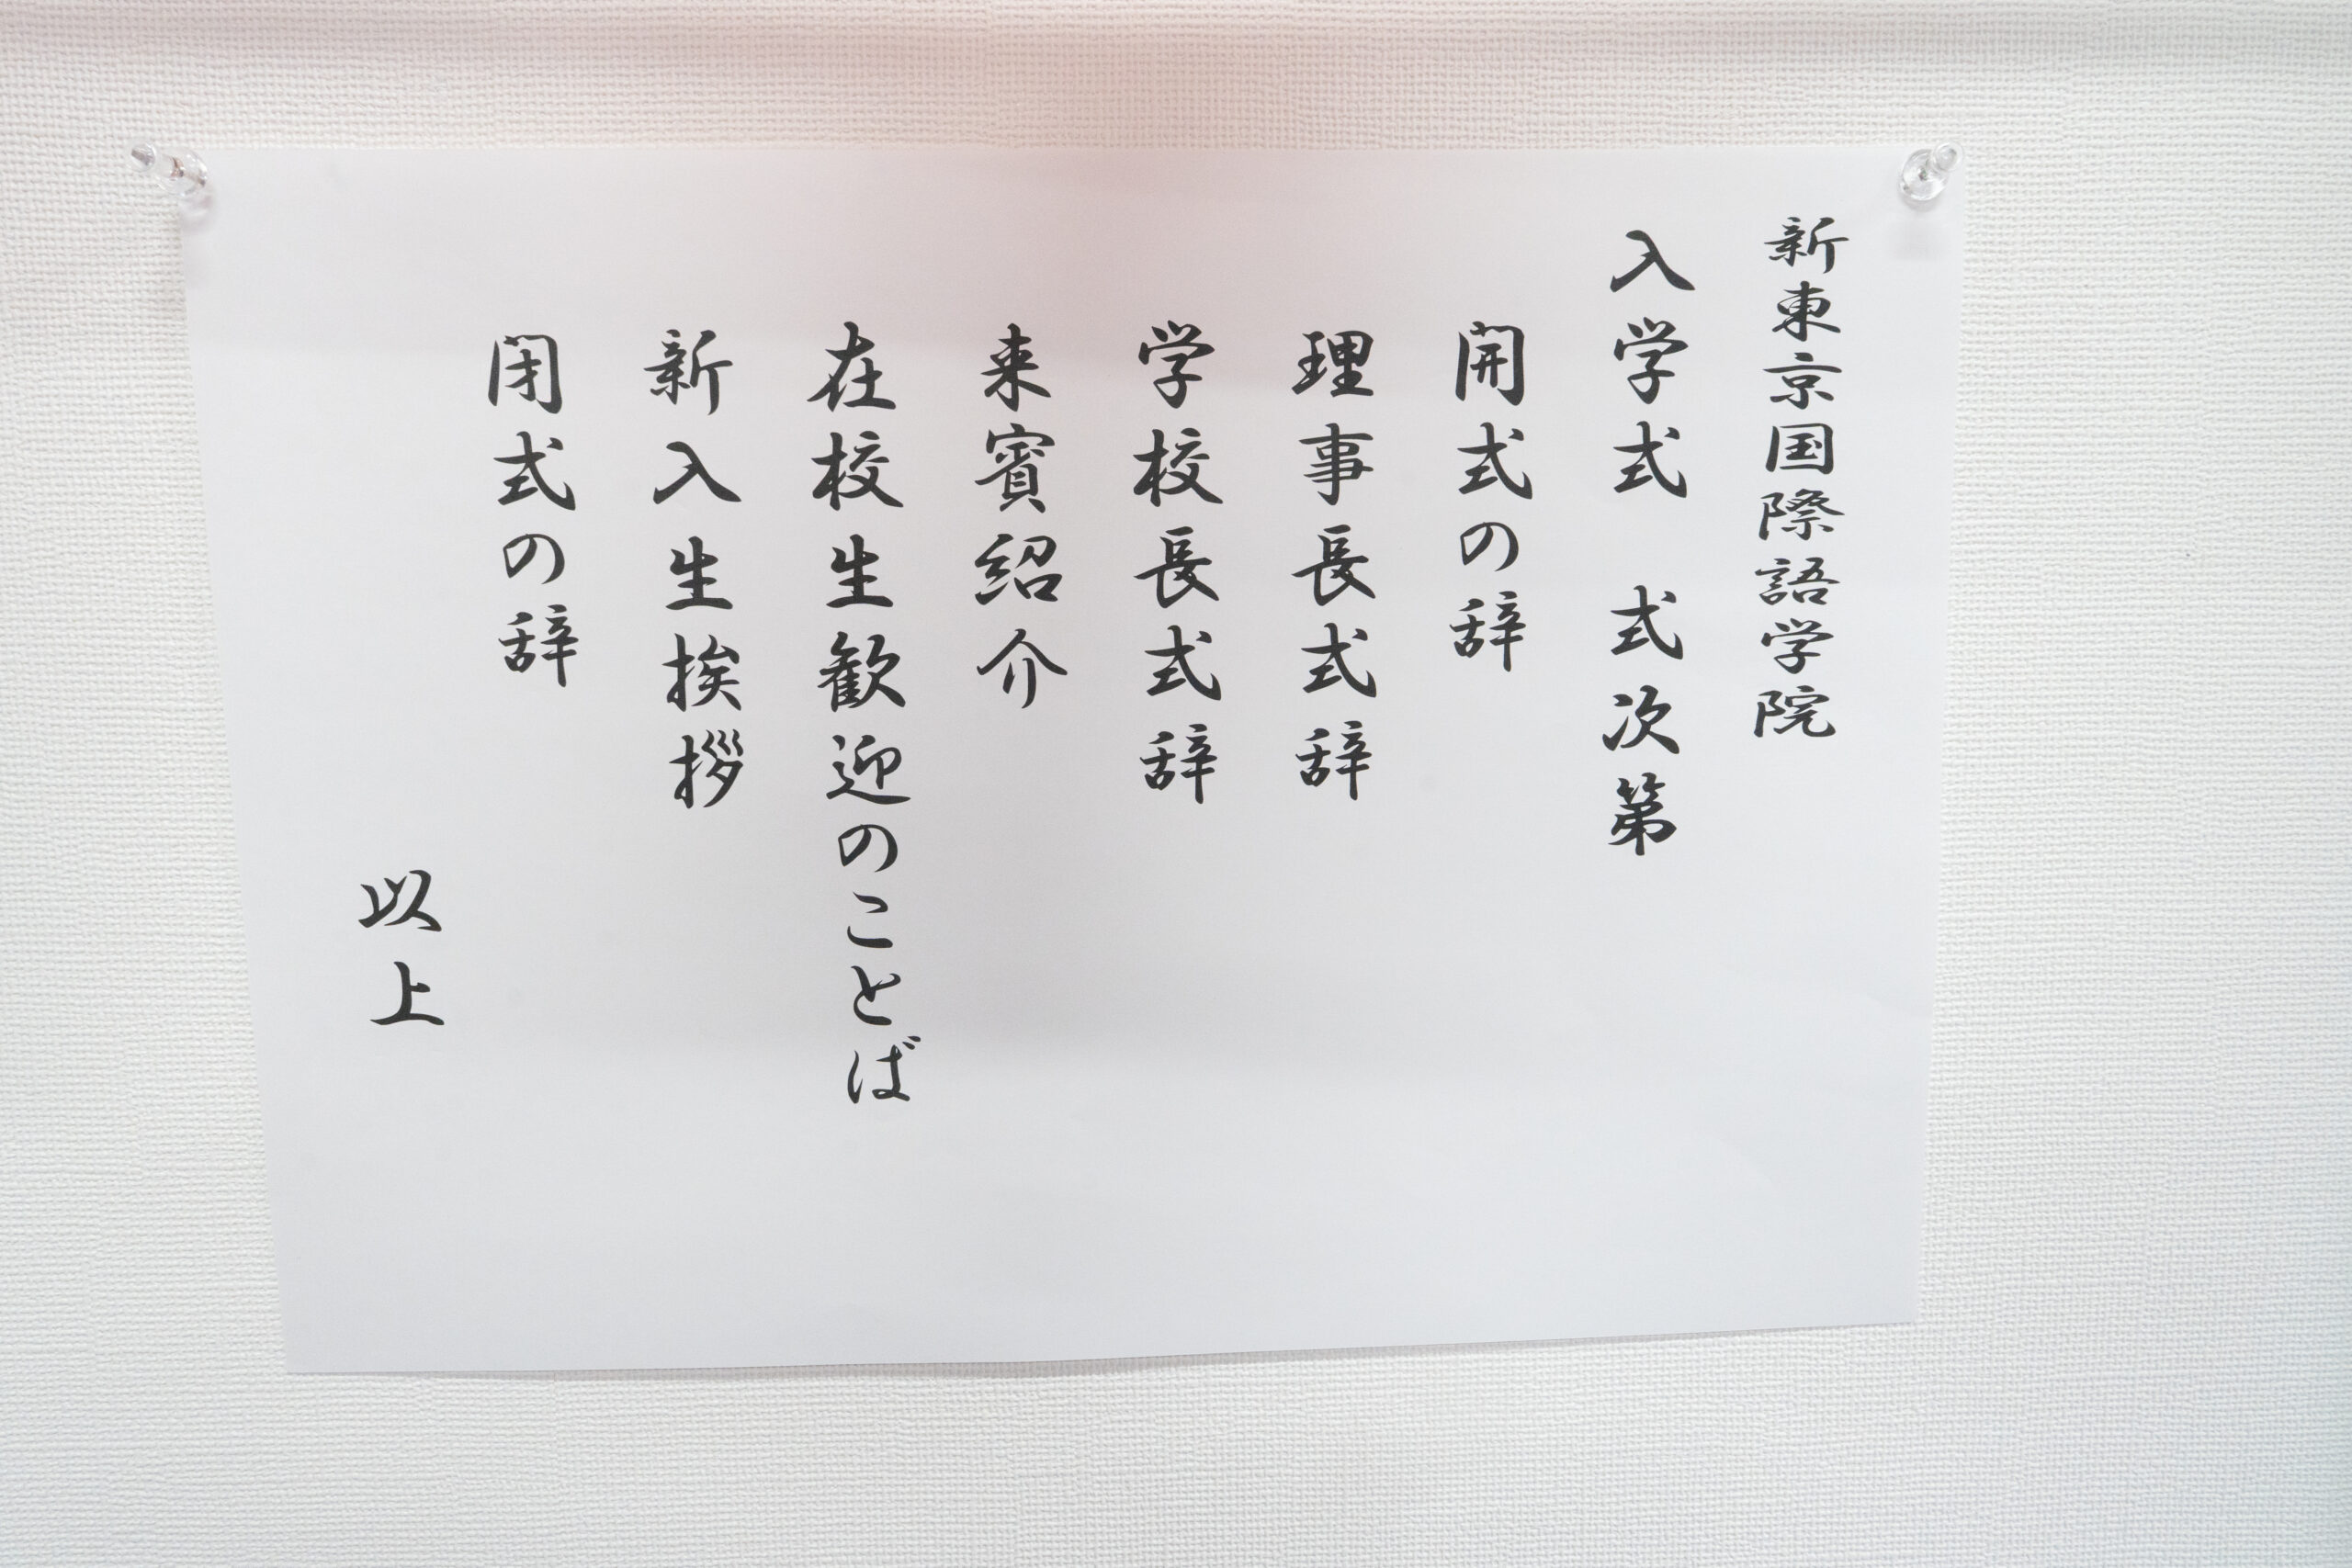 新東京国際語学院
入学式　式次第
開式の辞
理事長式辞
学校長式辞
来賓紹介
在校生歓迎のことば
新入生挨拶
閉式の辞
以上